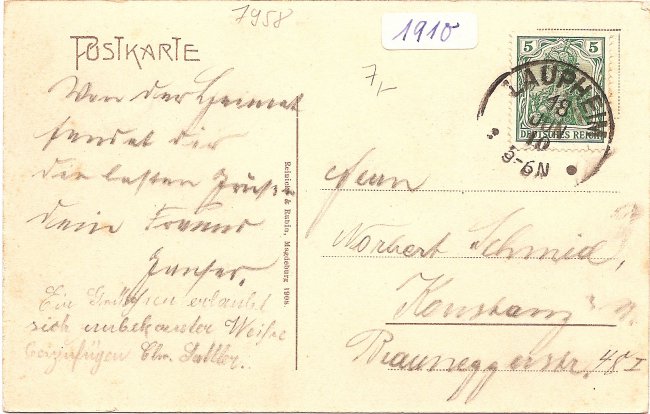 7958
1910
POSTKARTE
7,-
5 5
DEUTSCHES REICH
LAUPHEIM
18
JUN
10
5-6N
Von der Heimat
sendet dir
die besten Grüße
dein Freund
Ein Grüßchen erlaubt
sich unbekannter Weise
beizufügen Chr.
Reinicke & Rubin, Magdeburg 1908.
Herrn
Norbert Schmid,
Konstanz
Brauneggerstr. 48 I